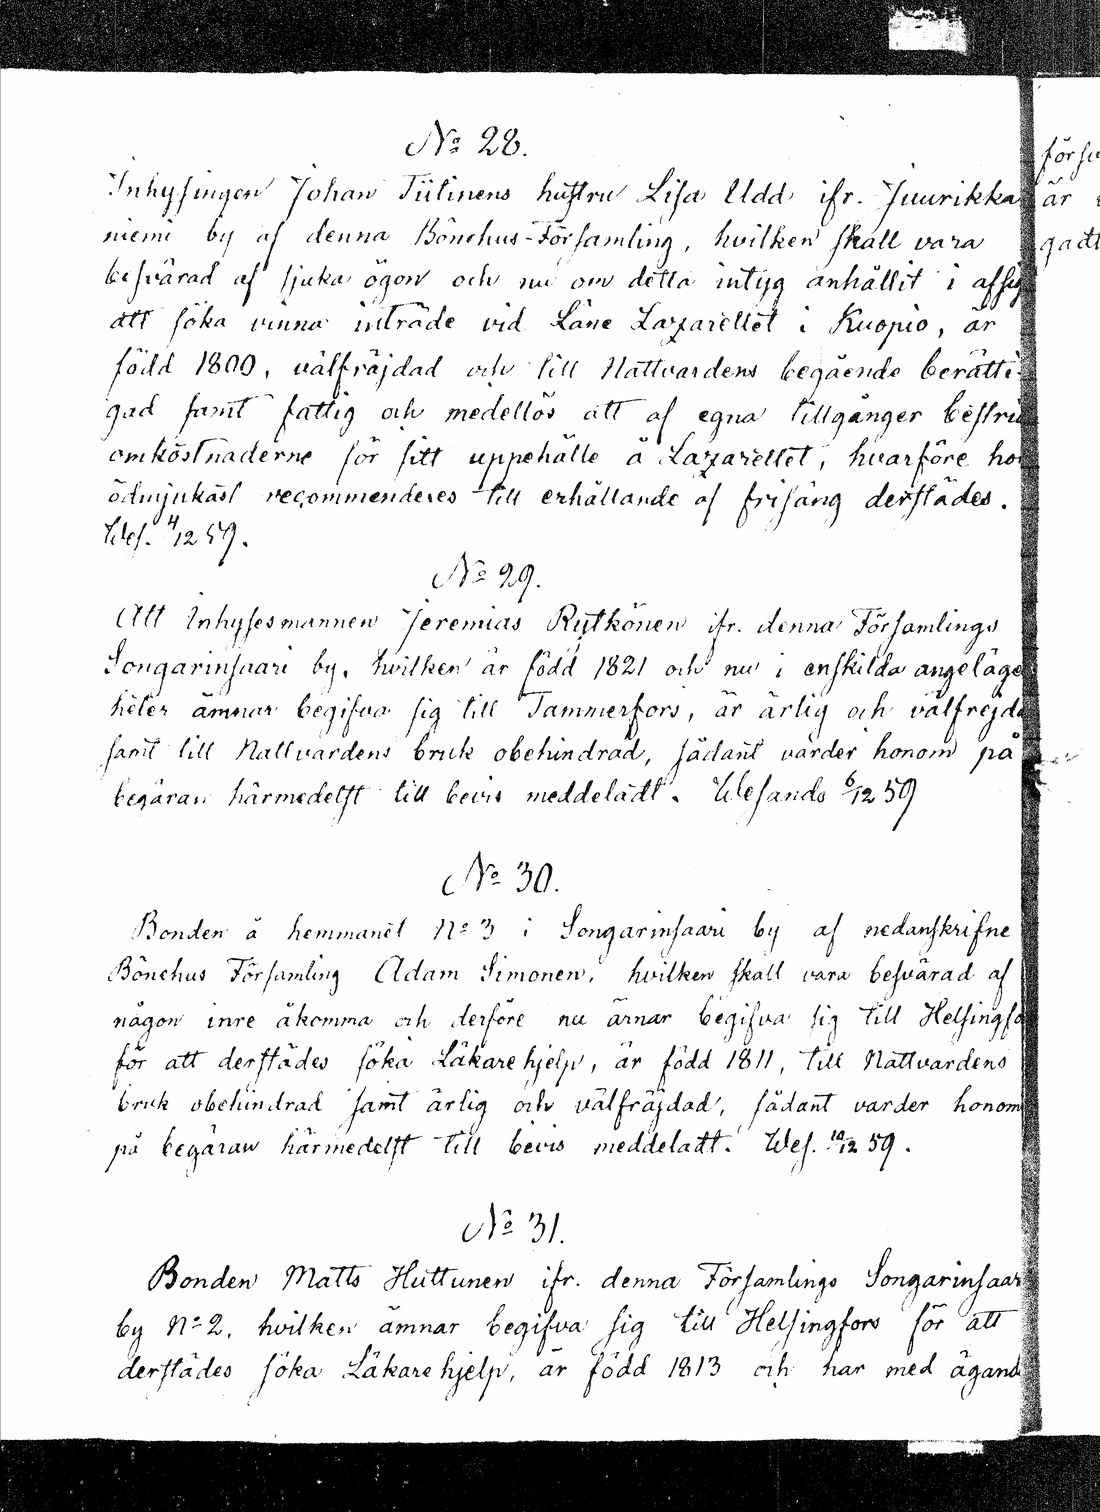 No 28.
Inhysingen Johan Tiilinens hustru Lisa Udd ifr. Juurikka
niemi by af denna Bönehus-Församling, hvilken skall vara
besvärad af sjuka ögon och nu om detta intyg anhållit i afsig
att söka vinna inträde vid Läne Lazarettet i Kuopio, är
född 1800, välfräjdad och till Nattvardens begående berätti-
gad samt fattig och medellös att af egna tillgånger bestrid
omkostnaderne för sitt uppehälle å Lazarettet, hvarföre hon
ödmjukast recommenderes till erhållande af frisäng derstädes.
Wes. 4/12 59.
No 29.
Att Inhysesmannen Jeremias Rytkönen ifr. denna Församlings
Songarinsaari by, hvilken är född 1821 och nu i enskilda angeläge
heter ämnar begifva sig till Tammerfors, är ärlig och välfrejda
samt till Nattvardens bruk obehindrad, sådant varder honom på
begäran härmedelst till bevis meddeladt. Wesando 6/12 59
No 30.
Bonden å hemmanet No 3 i Songarinsaari by af nedanskrifne
Bönehus Församling Adam Simonen, hvilken skall vara besvärad af
någon inre åkomma och derföre nu ärnar begifva sig till Helsingfo
för att derstädes söka Läkare hjelp, är född 1811, till Nattvardens
bruk obehindrad samt ärlig och välfräjdad, sådant varder honom
på begäran härmedelst till bevis meddeladt. Wes. 10/12 59.
No 31.
Bonden Matts Huttunen ifr. denna Församlings Songarinsaar
by No 2, hvilken ämnar begifva sig till Helsingfors för att
derstädes söka Läkare hjelp, är född 1813 och har med ägand
försv
är
gadt